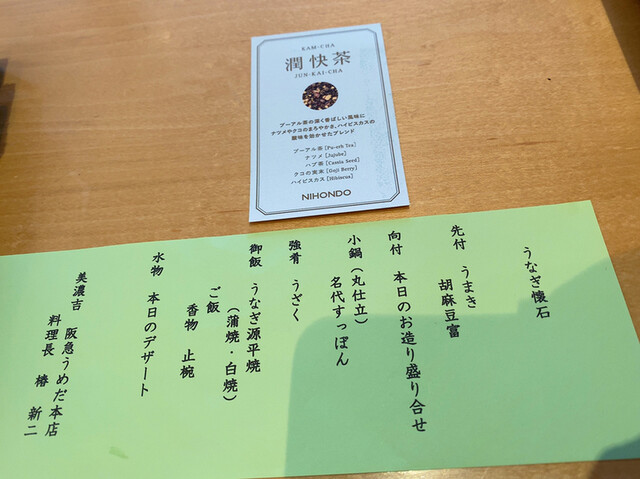 KAM-CHA
潤快茶
JUN-KAI-CHA
プーアル茶の深く香ばしい風味に
ナツメやクコのまろやかさ、ハイビスカスの
酸味を効かせたブレンド
プーアル茶 [Pu-erh Tea]
ナツメ [Jujube]
ハブ茶 [Cassia Seed]
クコの果実 [Goji Berry]
ハイビスカス [Hibiscus]
NIHONDO
うなぎ懐石
先付 うまき
胡麻豆富
向付 本日のお造り盛り合せ
小鍋 (丸仕立)
名代すっぽん
強肴 うざく
御飯 うなぎ源平焼
(蒲焼・白焼)
ご飯
香物 止椀
水物 本日のデザート
美濃吉 阪急うめだ本店
料理長 椿 新二